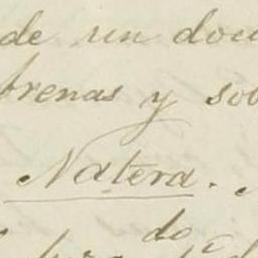 de un docu
brenas y sob
Natera.
do